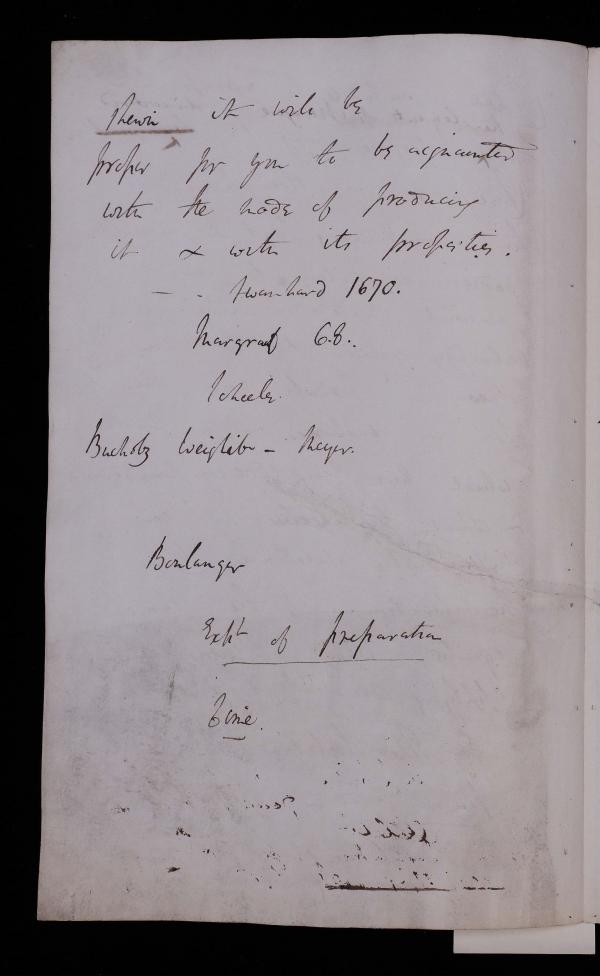 it will be
proper for you to be acquainted
with the mode of producing
it & with its properties.
- - Swanhard 1670.
Margraaf 68.
Scheele.
Bucholz Weigleb - Meyer.
Boulanger
Expt of preparation